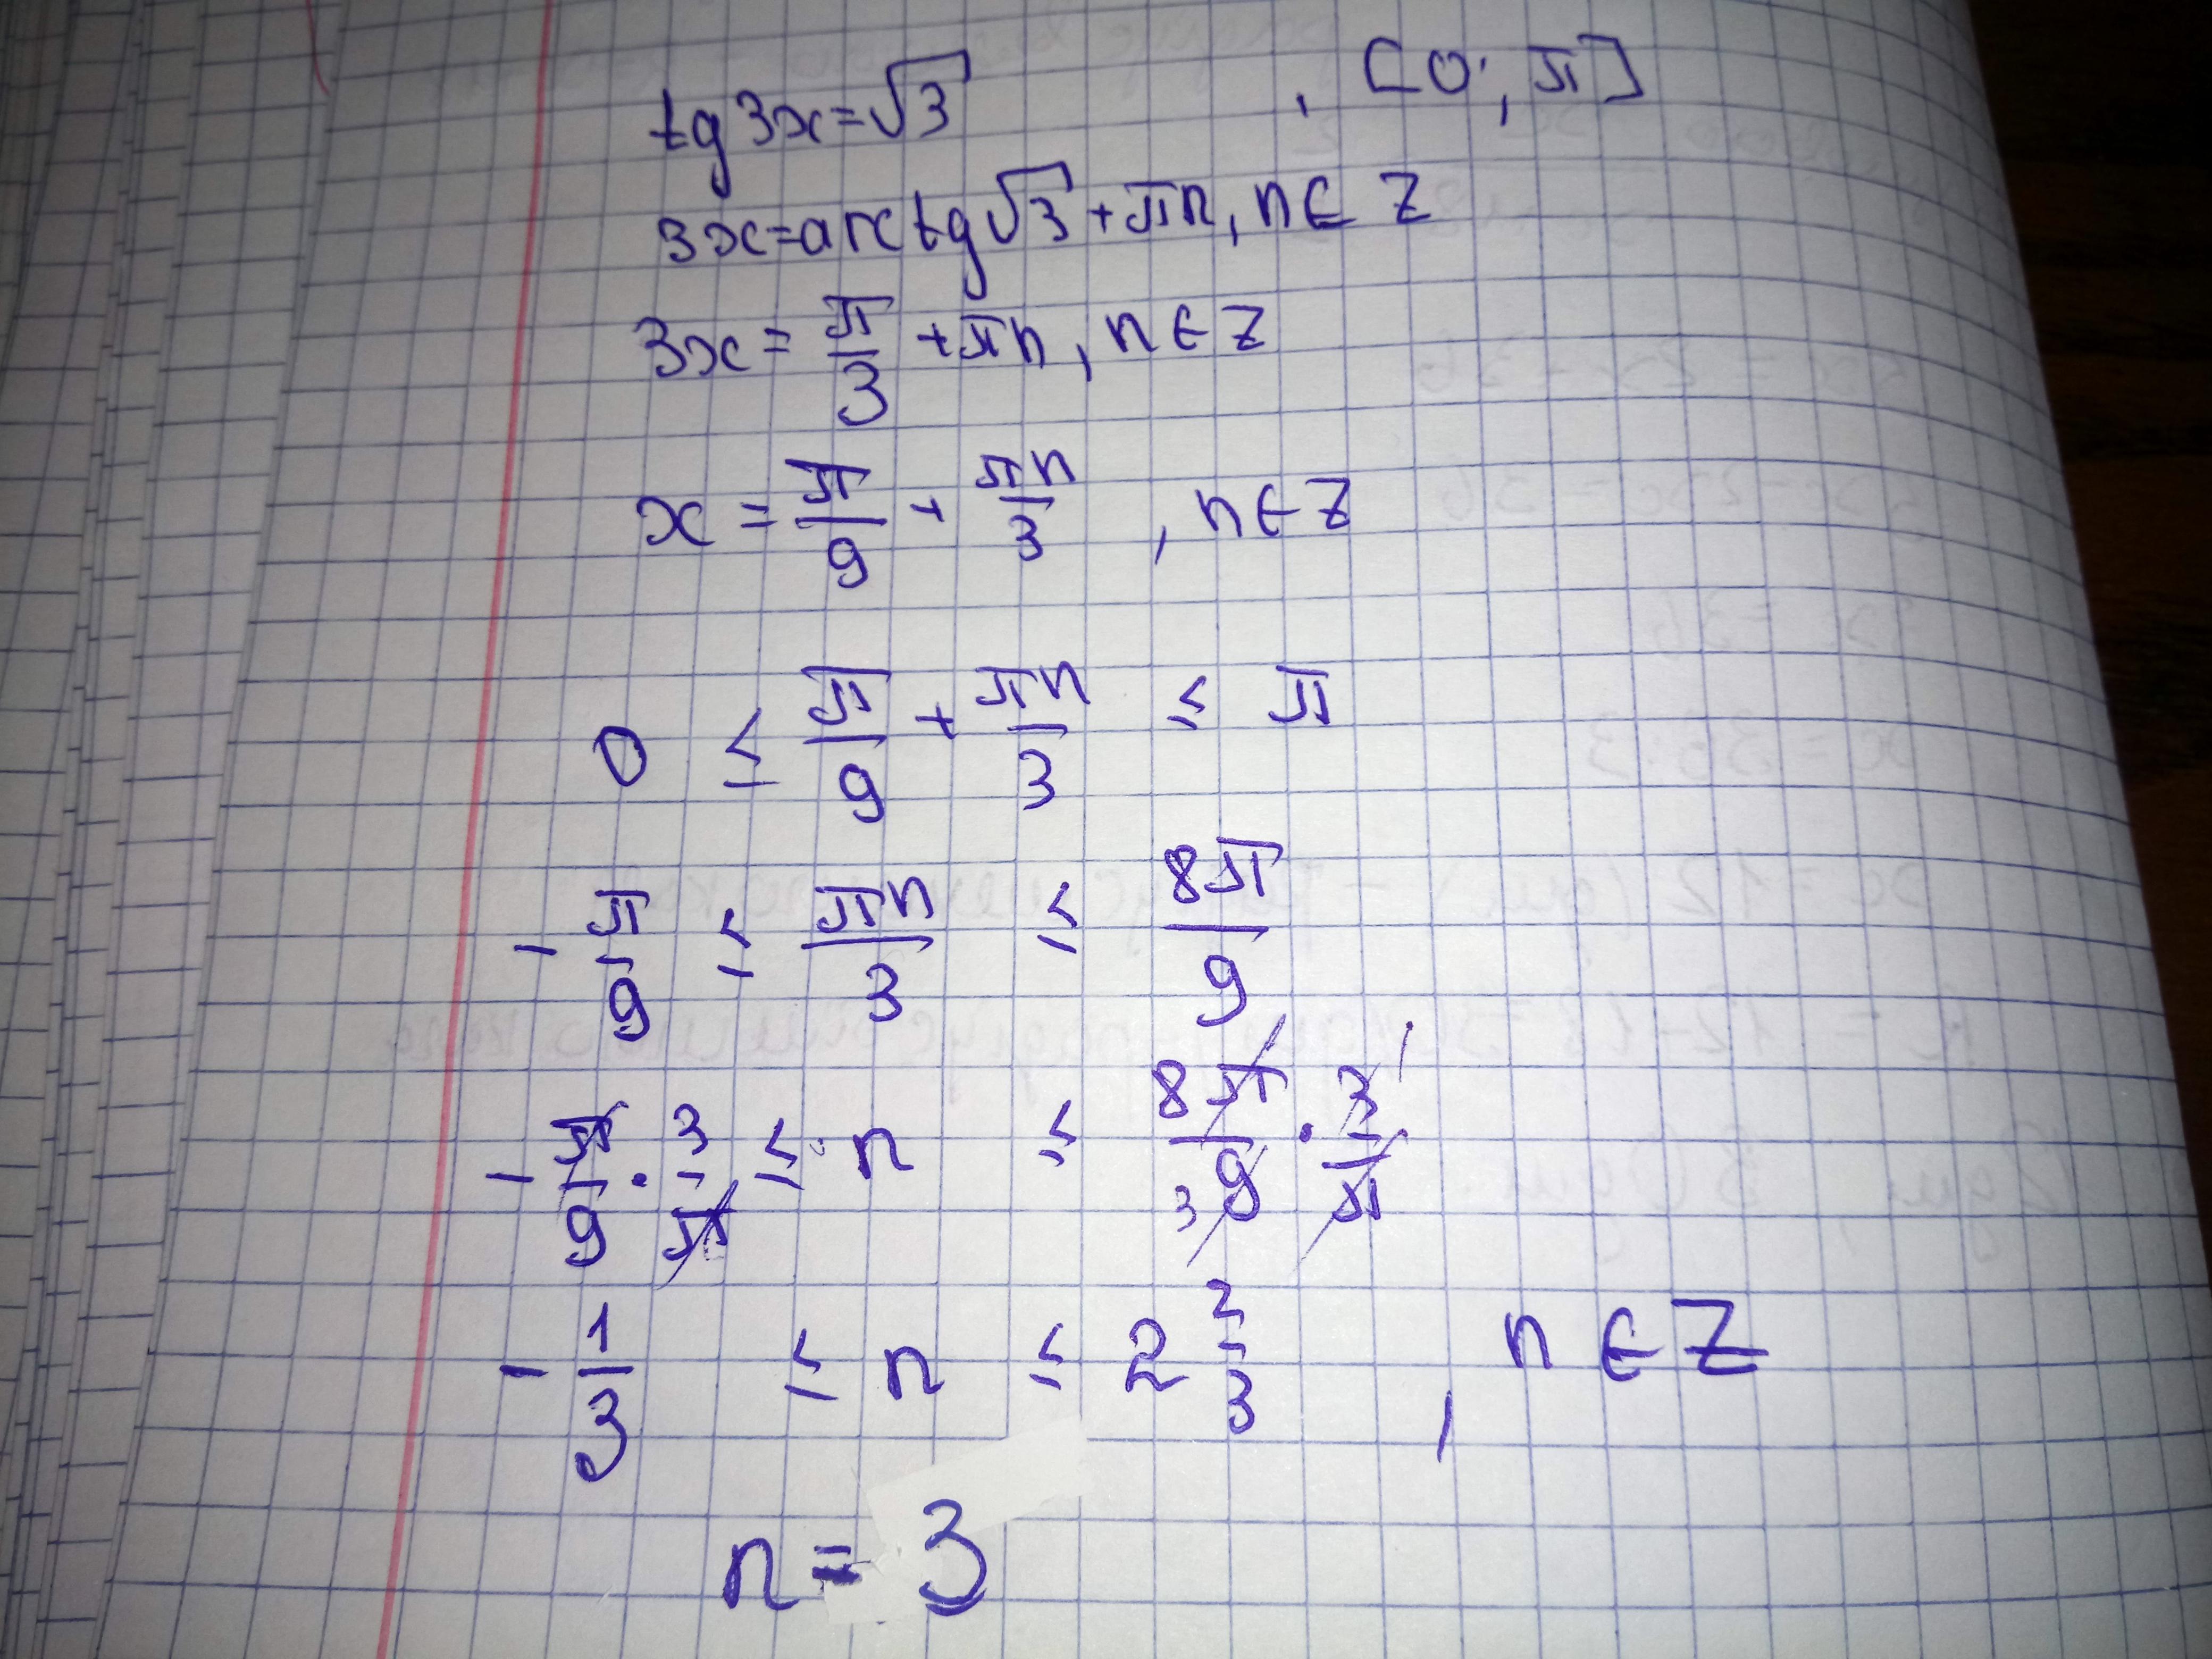 tg 3x = √3 , [0; π]
3x = arctg √3 + πn, n ∈ Z
3x = π/3 + πn, n ∈ Z
x = π/9 + πn/3 , n ∈ Z
0 ≤ π/9 + πn/3 ≤ π
- π/9 ≤ πn/3 ≤ 8π/9
- π/9 · 3/π ≤ n ≤ 8π/9 3 · 3/π 1
- 1/3 ≤ n ≤ 2 2/3 , n ∈ Z
n = 3